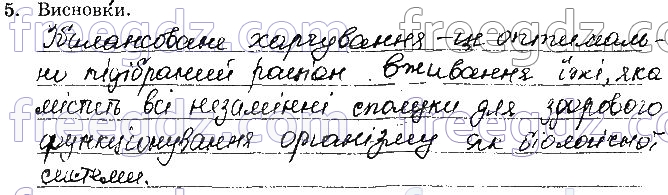 5. Висновки.
Збалансоване харчування – це оптималь-
но підібраний раціон вживання їжі, яка
містить всі незамінні сполуки для здорового
функціонування організму як біологічної
системи.